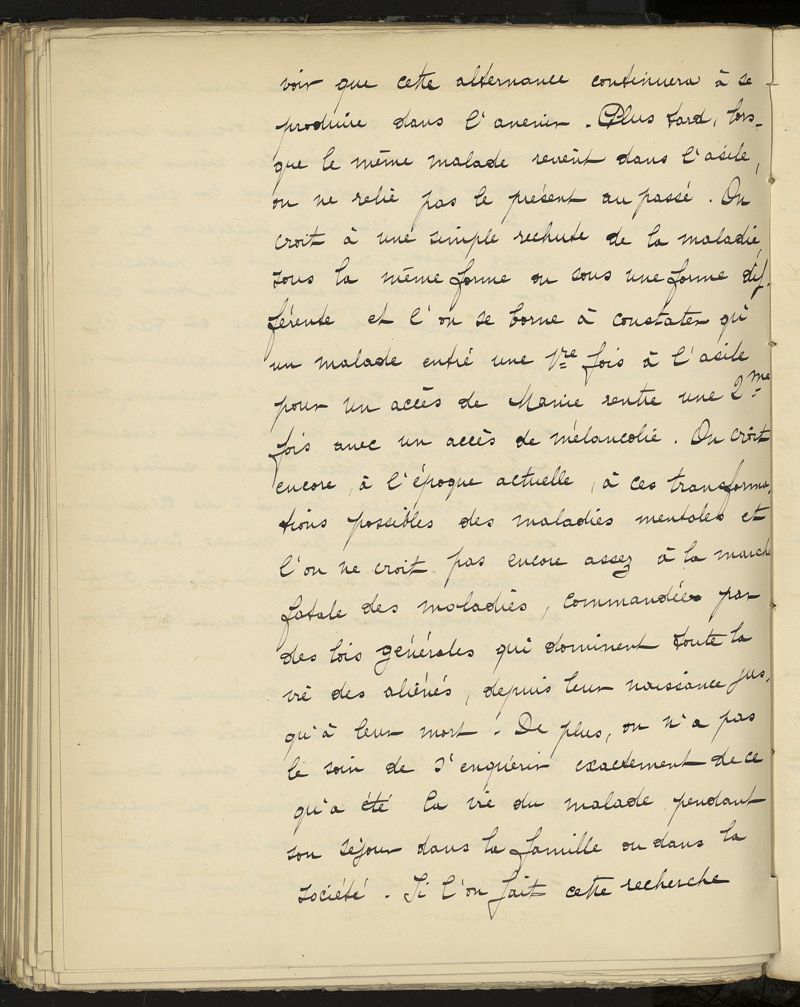 voir que cette alternance continuera à se
produire dans l'avenir. Plus tard, lors-
que le même malade revient dans l'asile,
on ne relie pas le présent au passé. On
croit à une simple rechute de la maladie,
sous la même forme ou sous une forme dif-
férente et l'on se borne à constater qu'
un malade entré une 1re fois à l'asile
pour un accès de Manie rentre une 2me
fois avec un accès de mélancolie. On croit
encore, à l'époque actuelle, à ces transforma-
tions possibles des maladies mentales et
l'on ne croit pas encore assez à la marche
fatale des maladies, commandée par
des lois générales qui dominent toute la
vie des aliénés, depuis leur naissance jus-
qu'à leur mort. De plus, on n'a pas
le soin de s'enquérir exactement de ce
qu'a été la vie du malade pendant
son séjour dans la famille ou dans la
société. Si l'on fait cette recherche